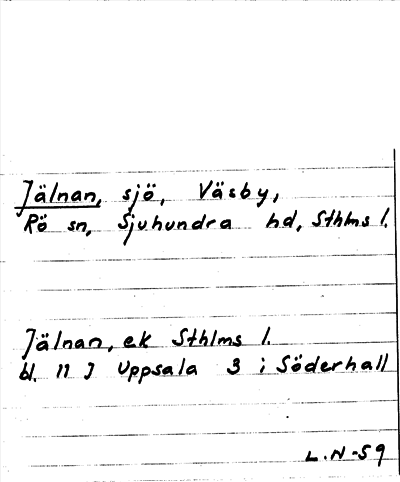 Jälnan, sjö, Väsby,
Rö sn, Sjuhundra hd, Sthlms l.
Jälnan, ek Sthlms l.
bl. 11 J Uppsala 3 i Söderhall
L.N-59